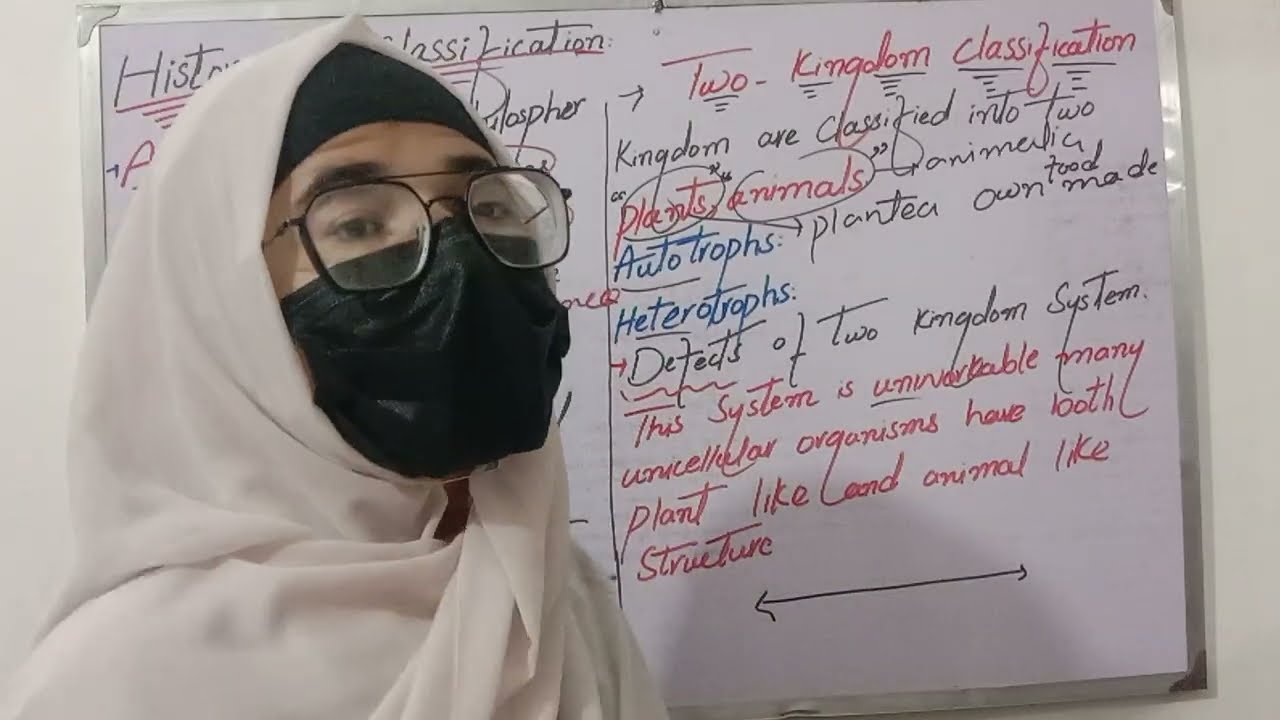 Classification:
→ Two - Kingdom Classification
Kingdom are classified into two
"Plants, animals" animalia
Autotrophs: plantea own food made
Heterotrophs:
→ Defects of Two Kingdom System.
This System is unworkable many
unicellular organisms have both
plant like and animal like
Structure